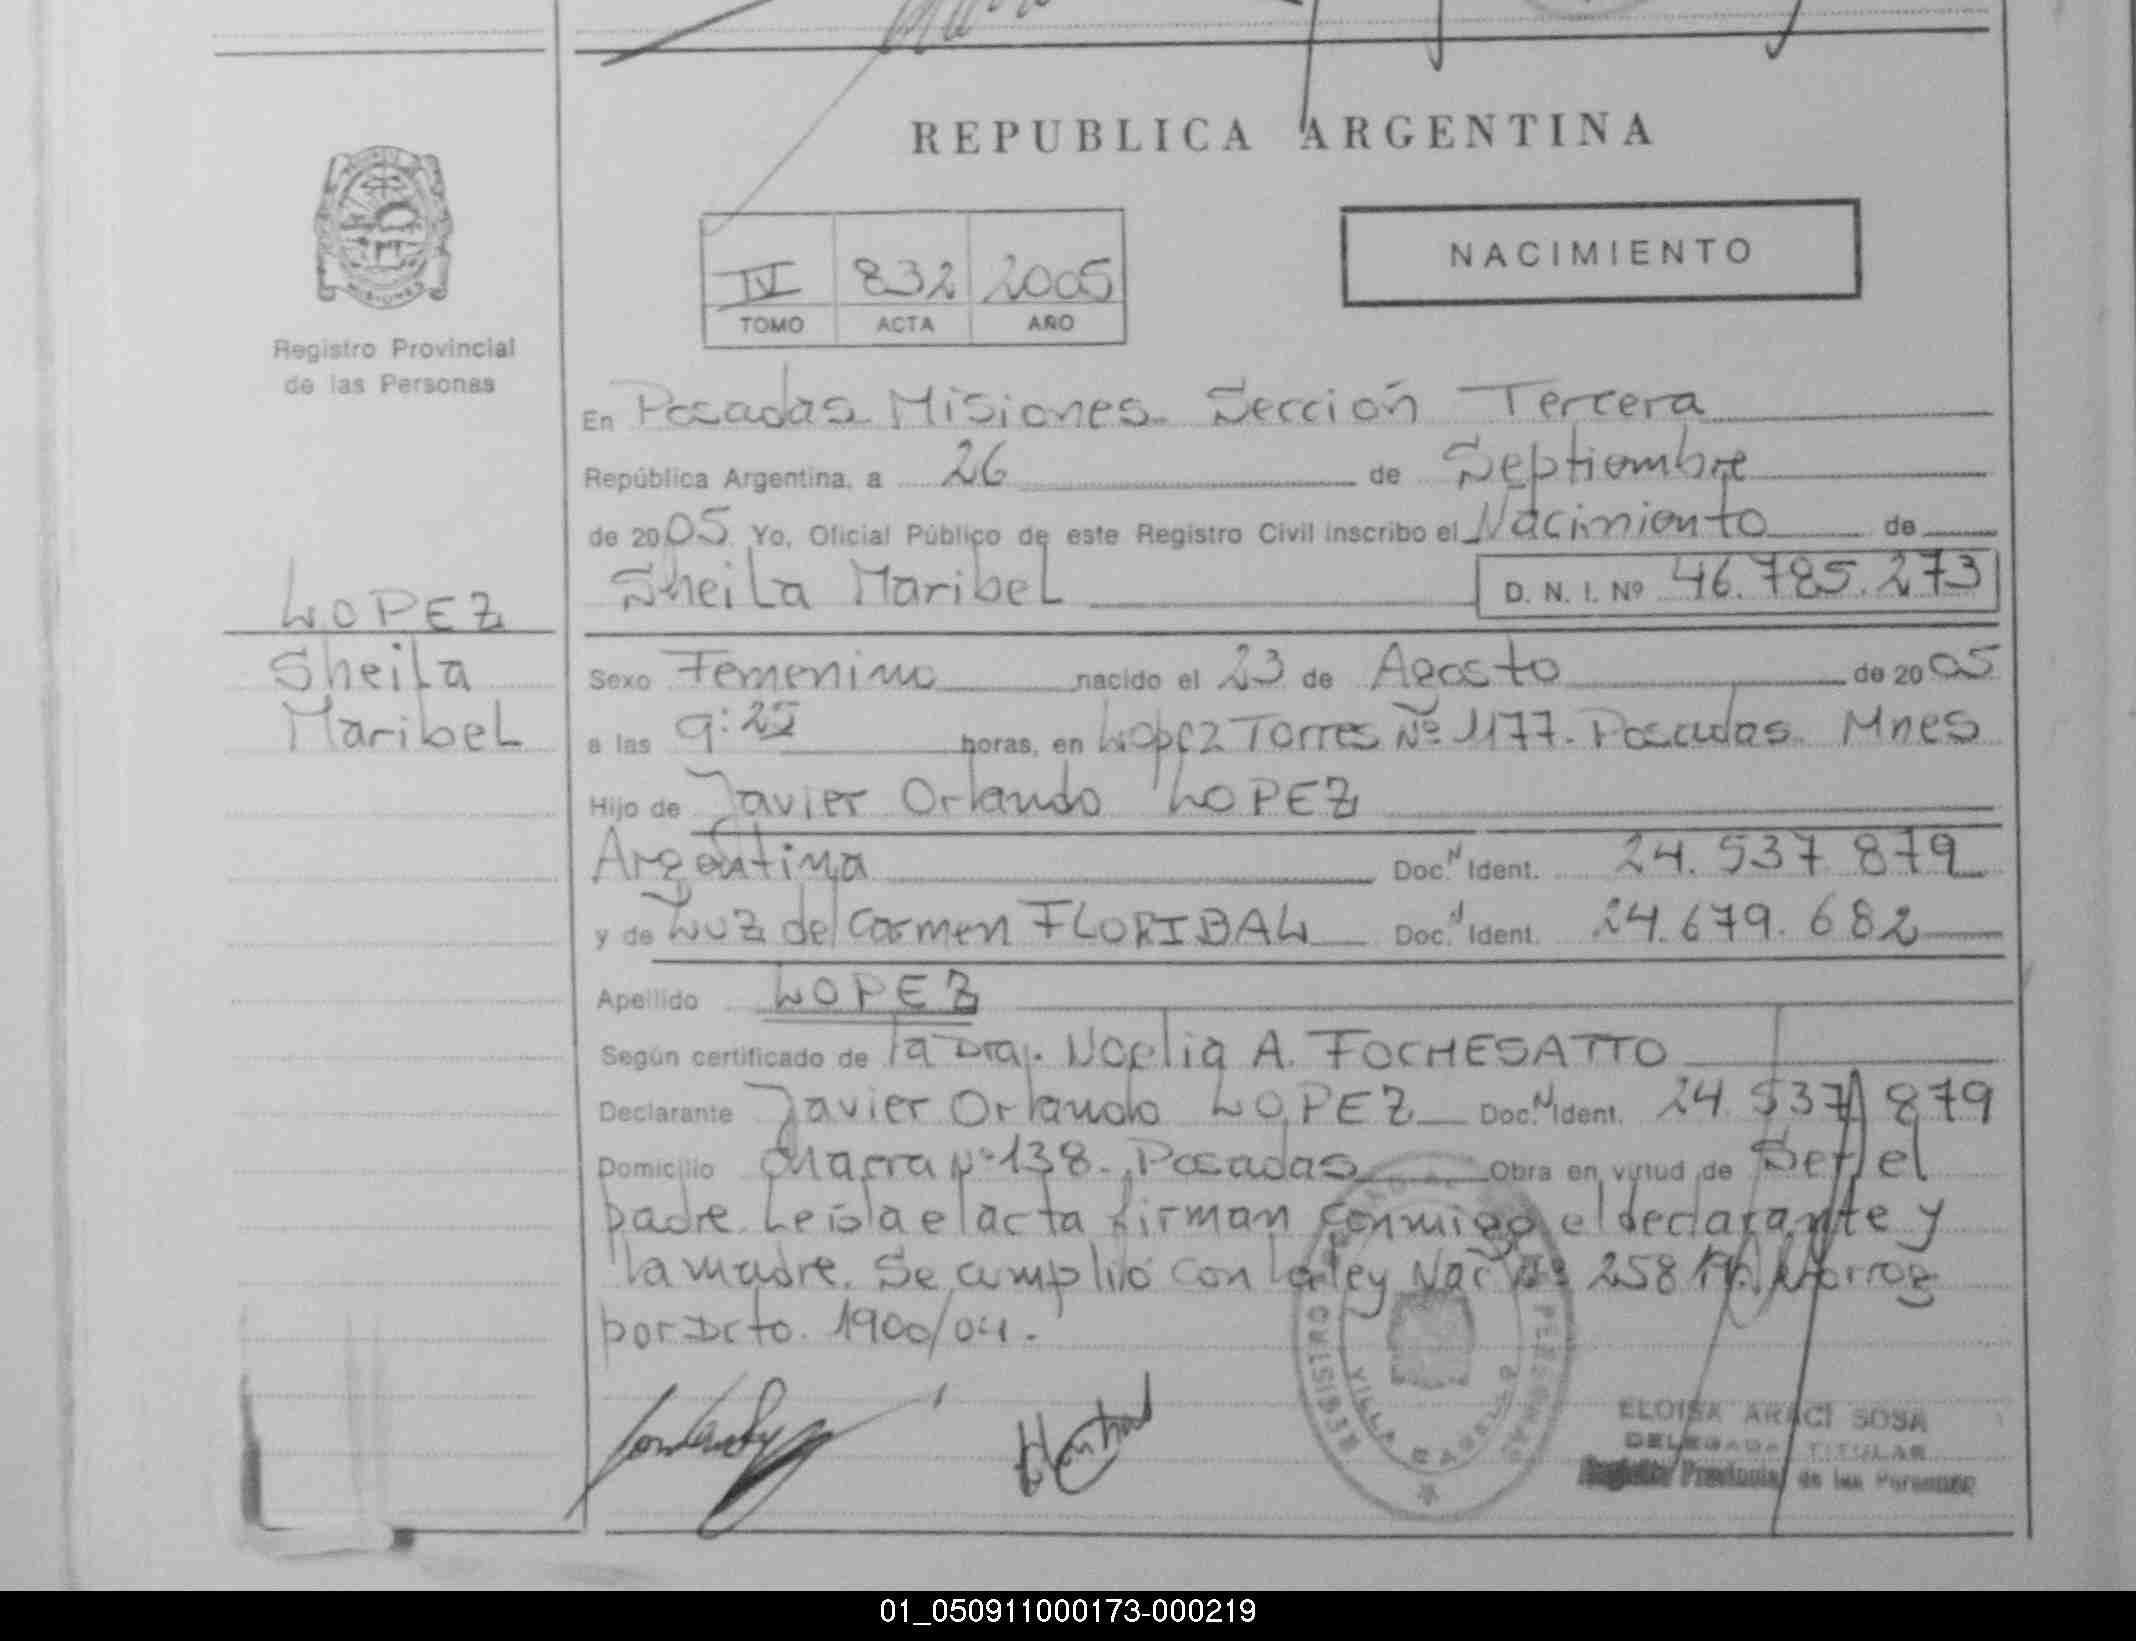 REPUBLICA ARGENTINA
NACIMIENTO
IV 832 2005
TOMO ACTA AÑO
MISIONES
Registro Provincial
de las Personas
LOPEZ
Sheila
Maribel
En Posadas Misiones Sección Tercera
República Argentina, a 26 de Septiembre
de 2005 Yo, Oficial Público de este Registro Civil inscribo el Nacimiento de
Sheila Maribel D. N. I. Nº 46.785.273
Sexo Femenino nacido el 23 de Agosto de 2005
a las 9:25 horas, en Lopez Torres Nº 1177. Posadas. Mnes
Hijo de Javier Orlando LOPEZ
Argentina Doc. N Ident. 24.537.879
y de Luz del Carmen FLORIBAL Doc. N Ident. 24.679.682
Apellido LOPEZ
Según certificado de la Dra. Noelia A. FOCHESATTO
Declarante Javier Orlando LOPEZ Doc. N Ident. 24.537.879
Domicilio Chacra Nº 138. Posadas Obra en virtud de Ser el
padre. Leída el acta firman conmigo el declarante y
la madre. Se cumplió con la ley Nac Nº
por Dcto. 1900/04.
VILLA CABELLO
ELOISA ARACI SOSA
DELEGADA TITULAR
Registro Provincial de las Personas
01_050911000173-000219